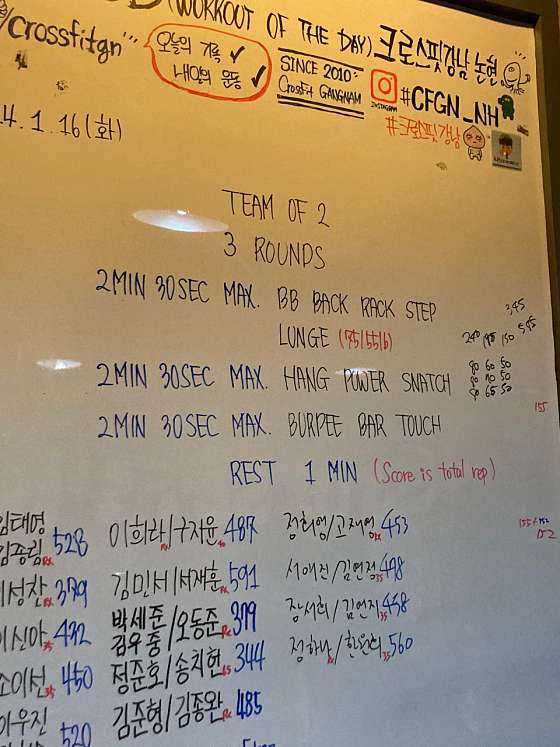 (WORKOUT OF THE DAY) 크로스핏강남 논현
/crossfitgn
오늘의 기록 ✓
내일의 운동 ✓
SINCE 2010
CrossFit GANGNAM
INSTAGRAM
#CFGN_NH
#크로스핏강남
4.1.16(화)
TEAM OF 2
3 ROUNDS
2MIN 30SEC MAX. BB BACK RACK STEP
LUNGE (75/55lb)
2MIN 30SEC MAX. HANG POWER SNATCH
2MIN 30SEC MAX. BURPEE BAR TOUCH
REST 1 MIN (Score is total rep)
80 60 50
80 70 50
80 65 50
155
152
김종림 528
이희라/구자윤 487
정희영/고재영 453
이성찬 379
김민서/서재훈 591
서예진/김연정 498
이신아 432
박세준/오동준 379
김우중
장서희/김연지 458
소이선 450
정준호/송치헌 344
정하나/한윤희 560
이우진 520
김준형/김종완 485